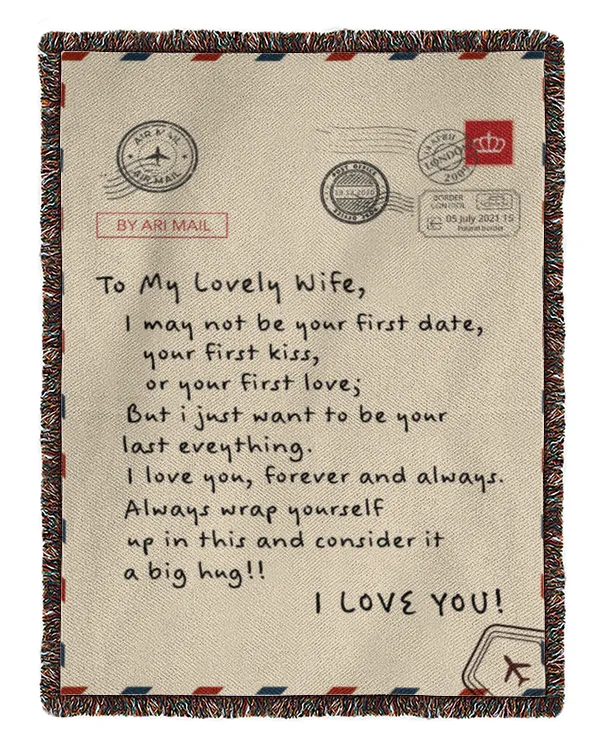 AIR MAIL
AIR MAIL
BY ARI MAIL
POST OFFICE
POST OFFICE
APRIL
LONDO
200
BORDER
05 July 2021 15
Poland border
To My Lovely Wife,
I may not be your first date,
your first kiss,
or your first love;
But i just want to be your
last eveything.
I love you, forever and always.
Always wrap yourself
up in this and consider it
a big hug!!
I LOVE YOU!